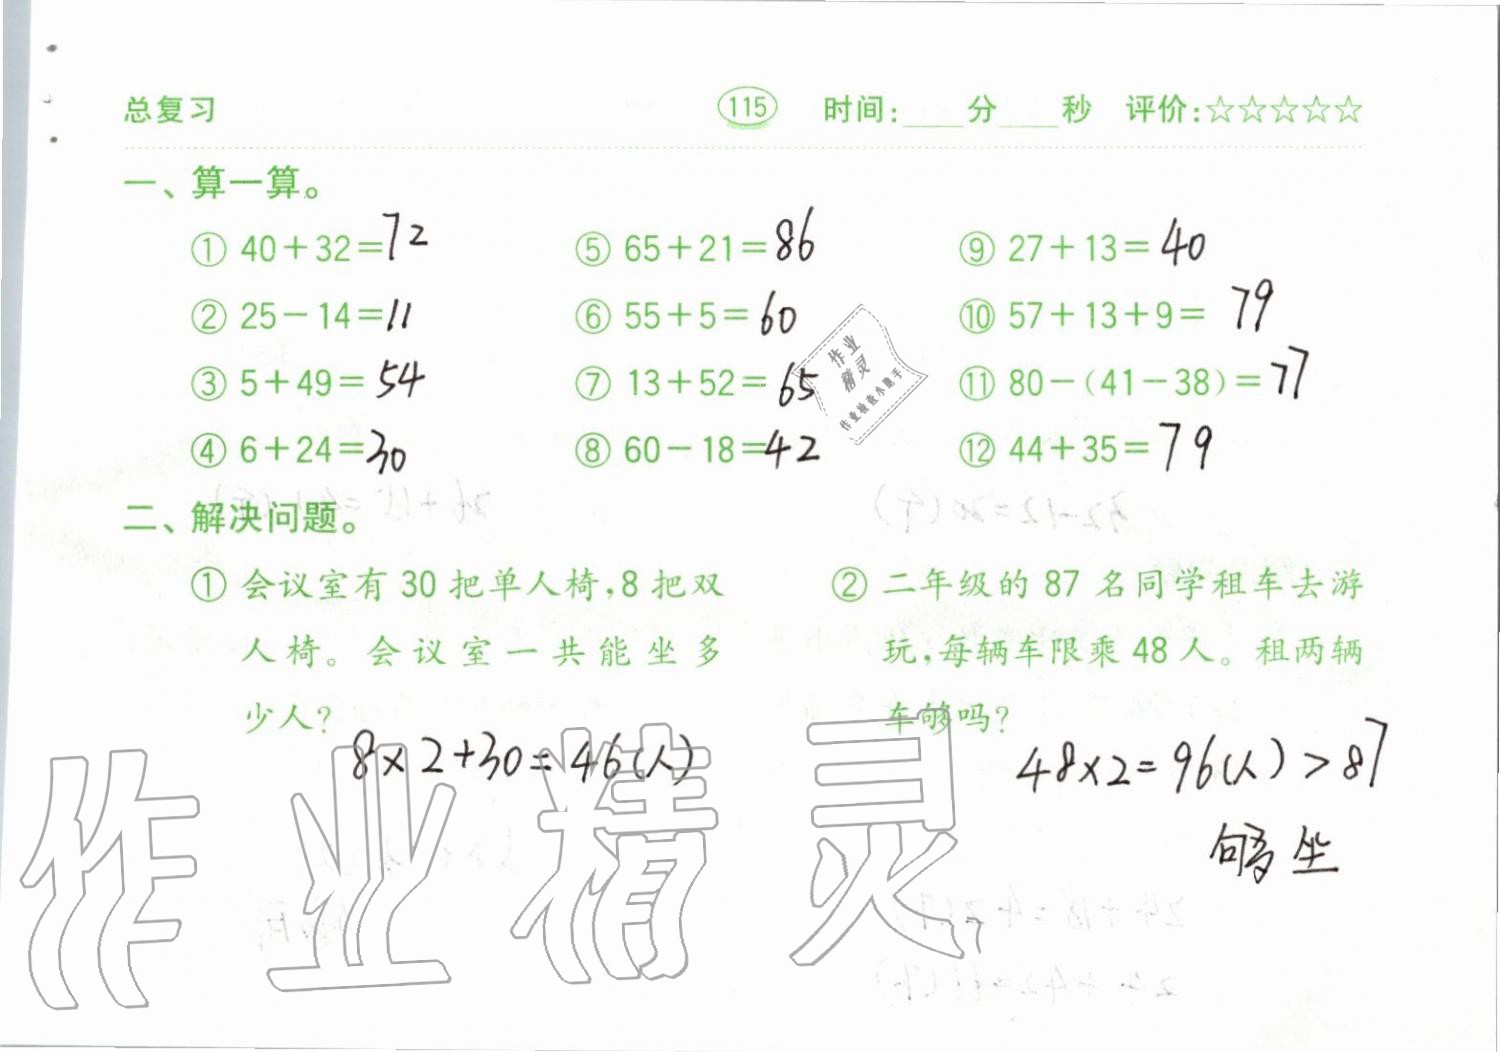 总复习 115 时间:____分____秒 评价:☆☆☆☆☆
一、算一算。
① 40+32=72 ⑤ 65+21=86 ⑨ 27+13=40
② 25-14=11 ⑥ 55+5=60 ⑩ 57+13+9= 79
③ 5+49=54 ⑦ 13+52=65 ⑪ 80-(41-38)=77
④ 6+24=30 ⑧ 60-18=42 ⑫ 44+35=79
作业
精灵
作业检查小助手
二、解决问题。
① 会议室有 30 把单人椅,8 把双
人椅。会议室一共能坐多
少人?
8×2+30=46(人)
② 二年级的 87 名同学租车去游
玩,每辆车限乘 48 人。租两辆
车够吗?
48×2=96(人)>87
够坐
作业精灵